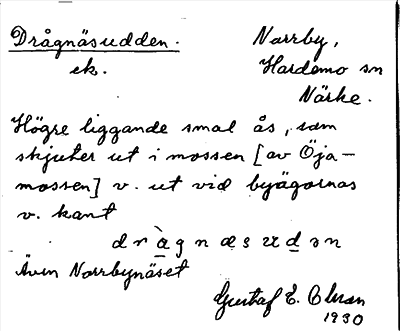 Drågnäsudden.
ek.
Norrby,
Hardemo sn
Närke.
Högre liggande smal ås, som
skjuter ut i mossen [av Öja-
mossen] v. ut vid byägornas
v. kant
dràgnæsudən
Även Norrbynäset
Gustaf E. Olsson
1930